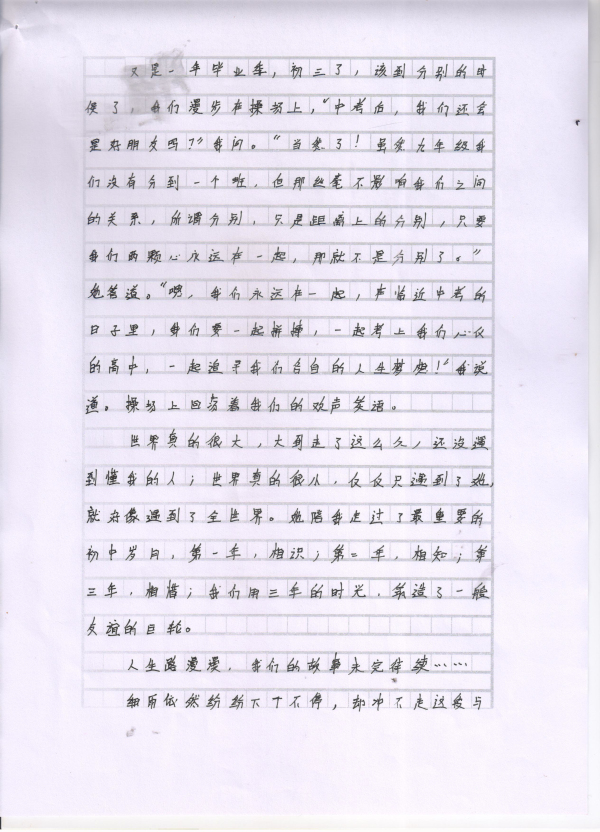 又是一年毕业季，初三了，该到分别的时
侯了，我们漫步在操场上，“中考后，我们还会
是好朋友吗？”我问。“当然了！虽然九年级我
们没有分到一个班，但那丝毫不影响我们之间
的关系，所谓分别，只是距离上的分别，只要
我们两颗心永远在一起，那就不是分别了。”
她答道。“嗯，我们永远在一起，在临近中考的
日子里，我们要一起拼搏，一起考上我们心仪
的高中，一起追寻我们各自的人生梦想！”我说
道。操场上回荡着我们的欢声笑语。
世界真的很大，大到走了这么久，还没遇
到懂我的人；世界真的很小，仅仅只遇到了她，
就好像遇到了全世界。她陪我走过了最重要的
初中岁月，第一年，相识；第二年，相知；第
三年，相惜；我们用三年的时光，铸造了一艘
友谊的巨轮。
人生路漫漫，我们的故事永完待续……
细雨依然纷纷下个不停，却冲不走这段与